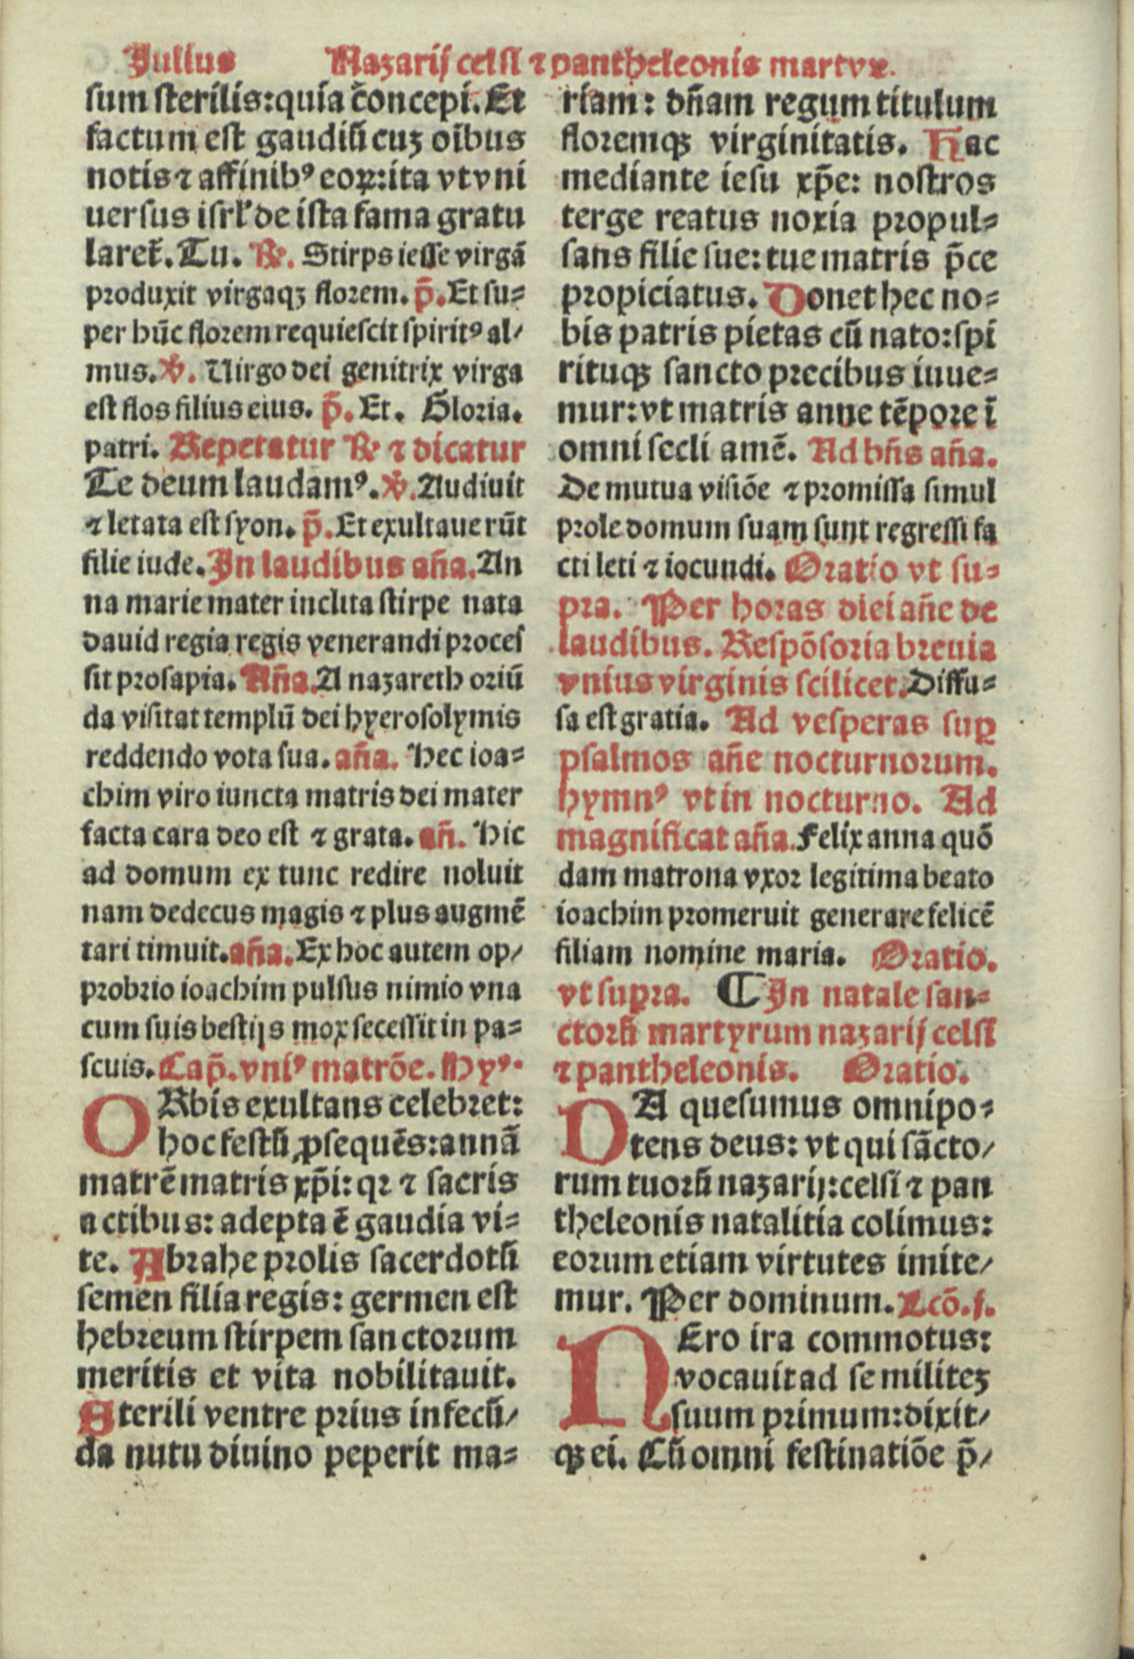 Julius Nazarij celsi ⁊ pantheleonis martyꝝ.
sum sterilis: quia c̄oncepi. Et
factum est gaudiū cuʒ oībus
notis ⁊ affinibꝰ eoꝝ: ita vt vni
uersus isrl̓ de ista fama gratu
laret̄. Tu. ℟. Stirps iesse virgā
produxit virgaqʒ florem. p̄. Et su⸗
per hūc florem requiescit spiritꝰ al/
mus. ℣. Uirgo dei genitrix virga
est flos filius eius. p̄. Et. Gloria.
patri. Repetatur ℟ ⁊ dicatur
Te deum laudamꝰ. ℣. Audiuit
⁊ letata est syon. p̄. Et exultauerūt
filie iude. In laudibus an̄a. An
na marie mater inclita stirpe nata
dauid regia regis venerandi proces
sit prosapia. An̄a. A nazareth oriū
da visitat templū dei hyerosolymis
reddendo vota sua. an̄a. Hec ioa⸗
chim viro iuncta matris dei mater
facta cara deo est ⁊ grata. an̄. Hic
ad domum ex tunc redire noluit
nam dedecus magis ⁊ plus augmē
tari timuit. an̄a. Ex hoc autem op/
probrio ioachim pulsus nimio vna
cum suis bestijs mox secessit in pa⸗
scuis. Cap̄. vniꝰ matrōe. Hyꝰ.
ORbis exultans celebret:
hoc festū ꝓsequēs: annā
matrē matris xp̄i: qꝛ ⁊ sacris
actibus: adepta ē gaudia vi⸗
te. Abrahe prolis sacerdotū
semen filia regis: germen est
hebreum stirpem sanctorum
meritis et vita nobilitauit.
Sterili ventre prius infecū/
da nutu diuino peperit ma⸗
riam: dn̄am regum titulum
floremqꝫ virginitatis. Hac
mediante iesu xp̄e: nostros
terge reatus noxia propul⸗
sans filie sue: tue matris p̄ce
propiciatus. Donet hec no⸗
bis patris pietas cū nato: spi
rituqꝫ sancto precibus iuue⸗
mur: vt matris anne tēpore ī
omni secli amē. Ad bn̄s an̄a.
De mutua visiōe ⁊ promissa simul
prole domum suam sunt regressi fa
cti leti ⁊ iocundi. Oratio vt su⸗
pra. Per horas diei an̄e de
laudibus. Respōsoria breuia
vnius virginis scilicet. Diffu⸗
sa est gratia. Ad vesperas suꝑ
psalmos an̄e nocturnorum.
hymnꝰ vt in nocturno. Ad
magnificat an̄a. Felix anna quō
dam matrona vxor legitima beato
ioachim promeruit generare felicē
filiam nomine maria. Oratio.
vt supra. ¶ In natale san⸗
ctorū martyrum nazarij celsi
⁊ pantheleonis. Oratio.
DA quesumus omnipo⸗
tens deus: vt qui sācto/
rum tuorū nazarij: celsi ⁊ pan
theleonis natalitia colimus:
eorum etiam virtutes imite/
mur. Per dominum. Lcō. j.
NEro ira commotus:
vocauit ad se militeʒ
suum primum: dixit/
qꝫ ei. Cū omni festinatiōe p̄/